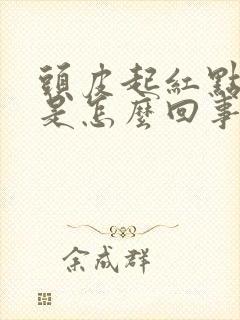 頭皮起紅點
是怎麼回事
余成群